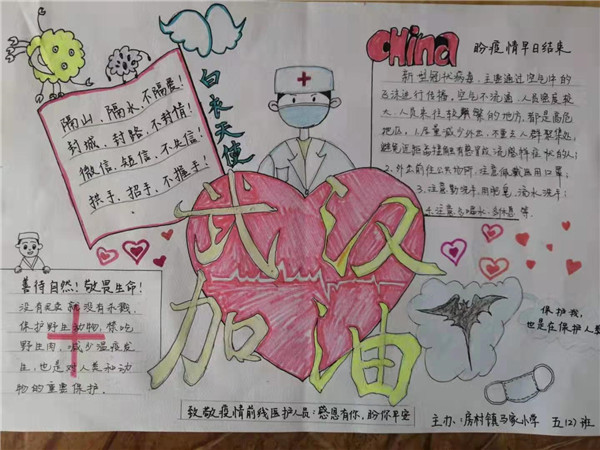 China
盼疫情早日结束
隔山、隔水、不隔爱!
封城、封路、不封情!
微信、短信、不失信!
拱手、招手、不握手!
白衣天使
新型冠状病毒,主要通过空气中的
飞沫进行传播,空气不流通,人员密度较
大,人员来往较频繁的地方,都是高危
地区,1.尽量减少外出,不要去人群聚集处,
2.外出前往公共场所,注意佩戴医用口罩;
3.注意勤洗手,用肥皂,流水洗手;
4.注意多喝水,多休息等.
武汉
加油
善待自然!敬畏生命!
没有买卖就没有杀戮,
保护野生动物,禁吃
野生肉,减少瘟疫发
生,也是对人类和动
物的重要保护.
保护我,
也是在保护人类
致敬疫情前线医护人员:感恩有你,盼你平安
主办:房村镇马家小学 五(2)班